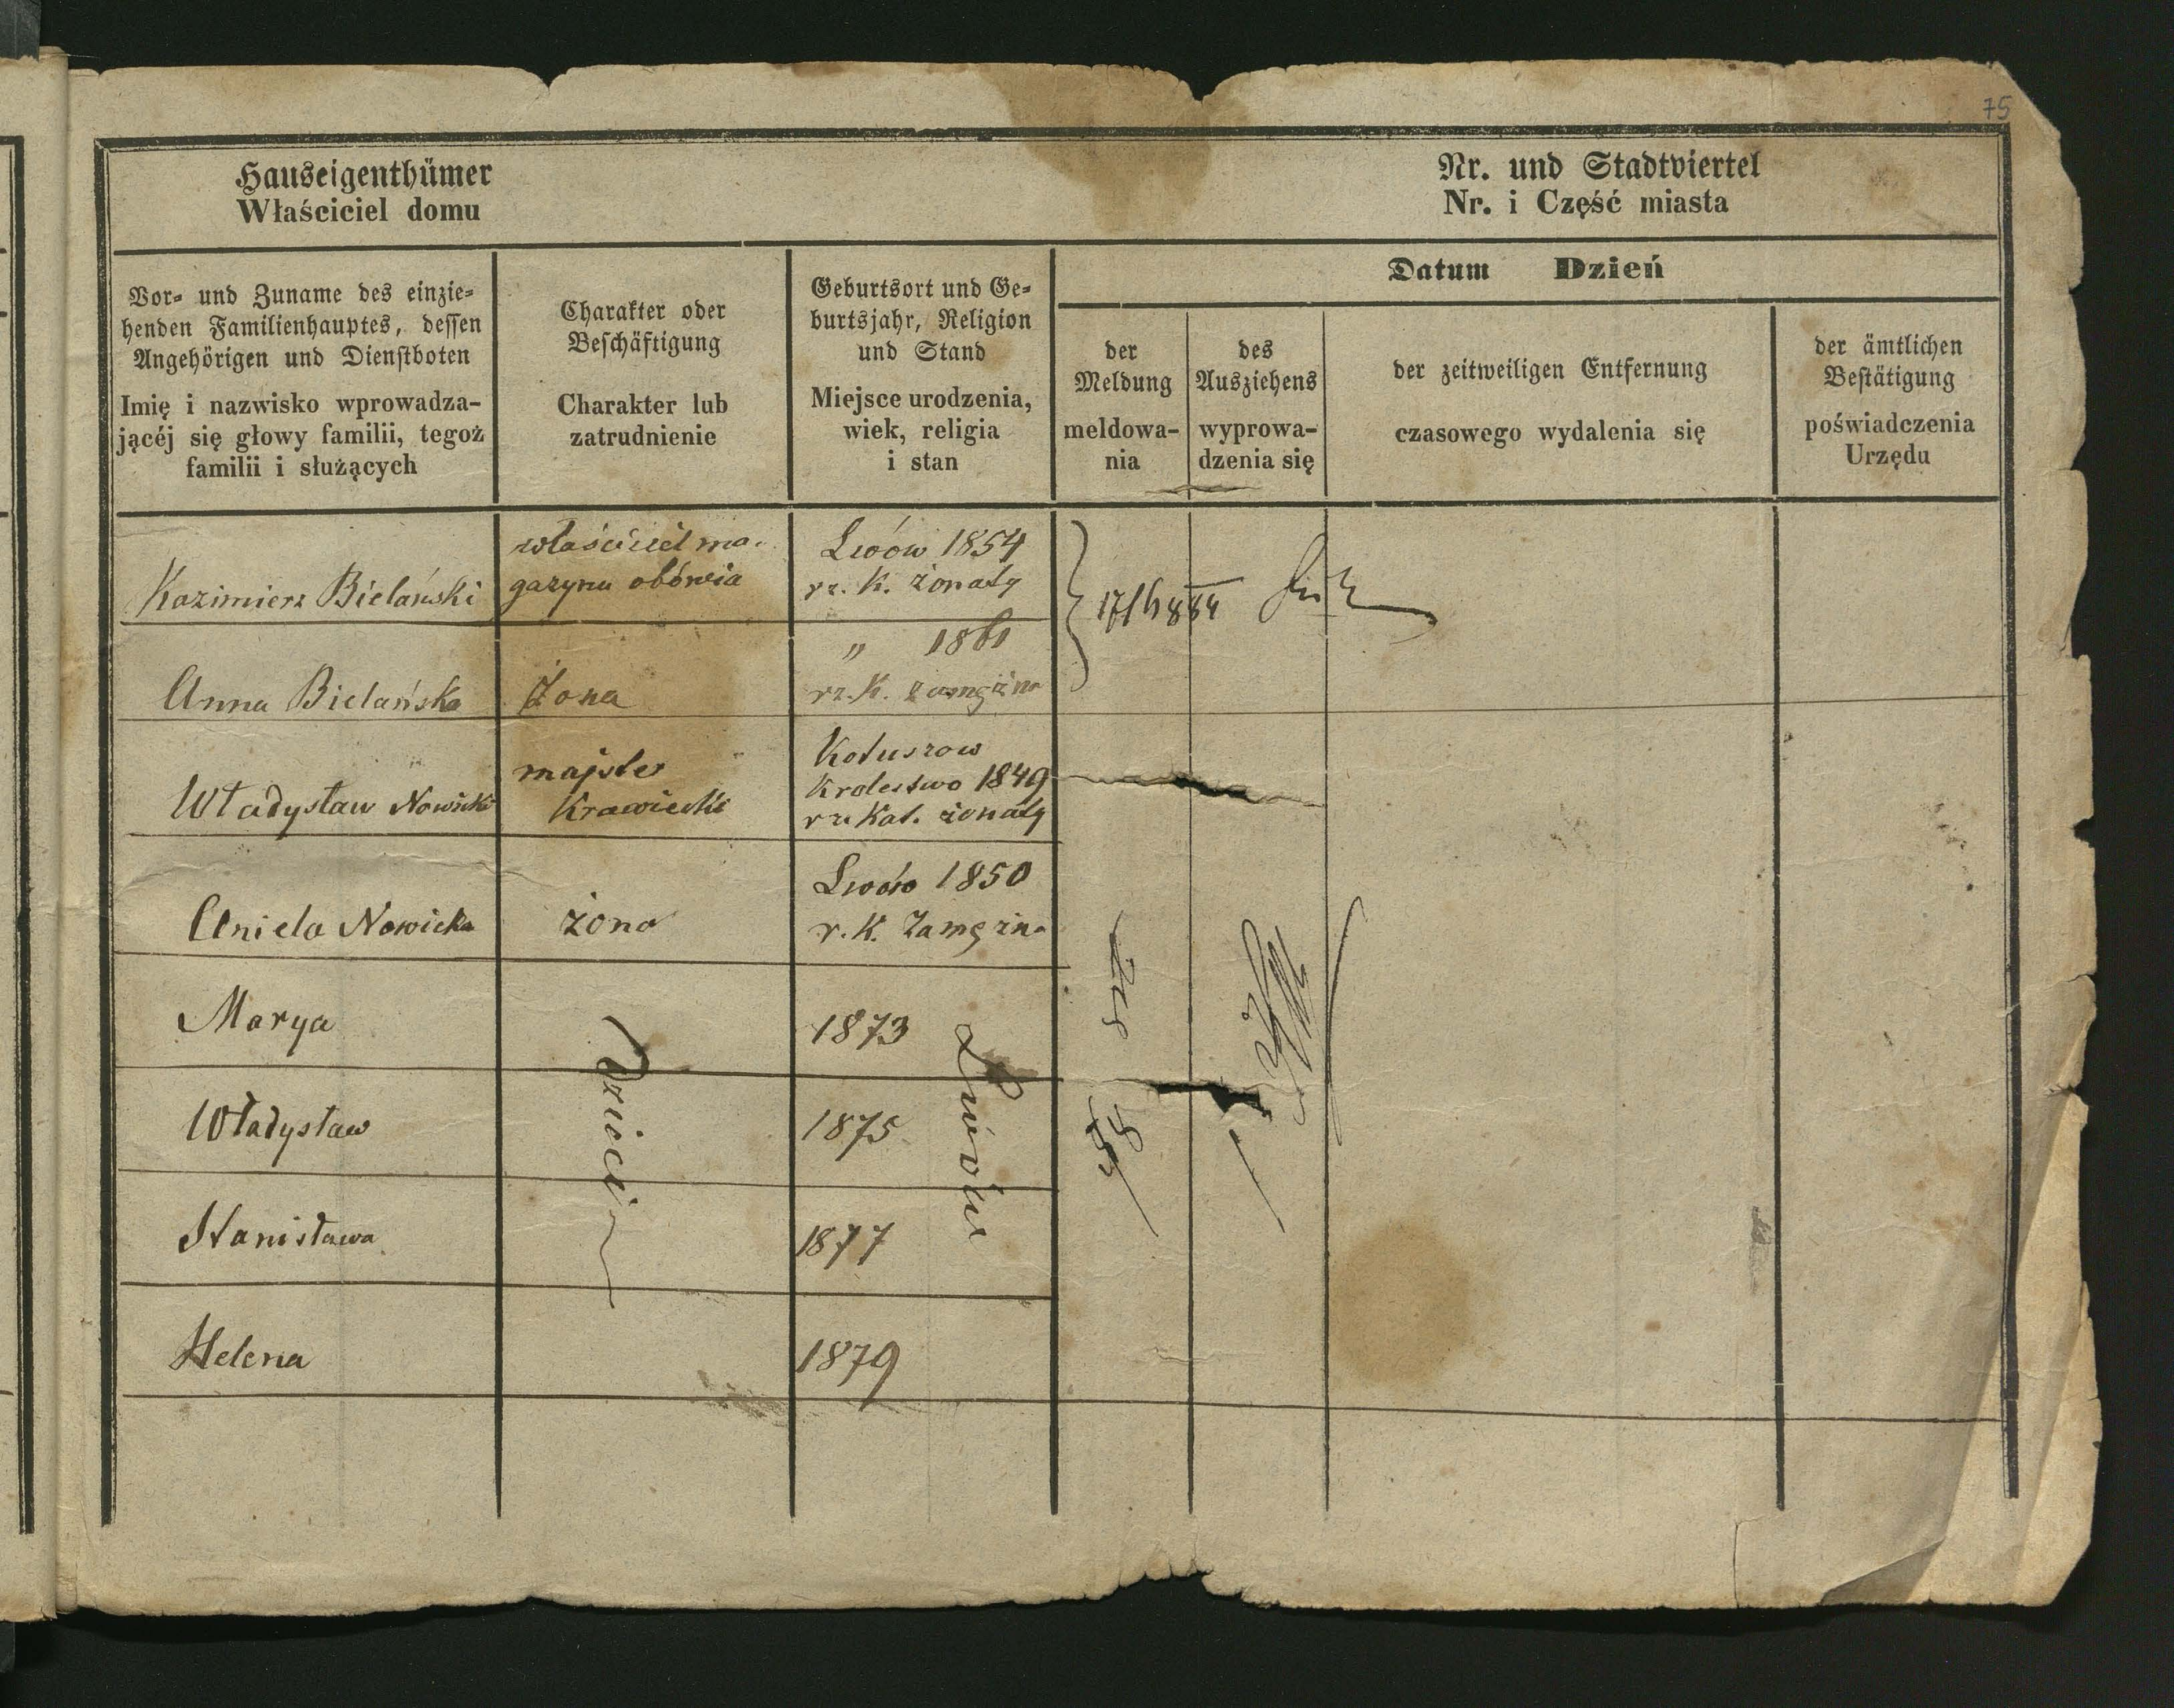 75
Hauseigenthümer
Właściciel domu
Nr. und Stadtviertel
Nr. i Część miasta
Vor- und Zuname des einzie-
henden Familienhauptes, dessen
Angehörigen und Dienstboten
Imię i nazwisko wprowadza-
jącéj się głowy familii, tegoż
familii i służących
Charakter oder
Beschäftigung
Charakter lub
zatrudnienie
Geburtsort und Ge-
burtsjahr, Religion
und Stand
Miejsce urodzenia,
wiek, religia
i stan
Datum Dzień
der
Meldung
meldowa-
nia
des
Ausziehens
wyprowa-
dzenia się
der zeitweiligen Entfernung
czasowego wydalenia się
der ämtlichen
Bestätigung
poświadczenia
Urzędu
Kazimierz Bielański
właściciel ma-
gazynu obówia
Lwów 1854
rz. K. żonaty
Anna Bielańska
Żona
" 1861
rz. K. zamężna
Władysław Nowicki
majster
Krawiecki
Kotuszow
Krolestwo 1849
rz Kat. żonaty
Aniela Nowicka
żona
Lwów 1850
r. K. Zamężna
Marya
1873
Władysław
1875
Stanisława
1877
Helena
1879
Dzieci
Lwów